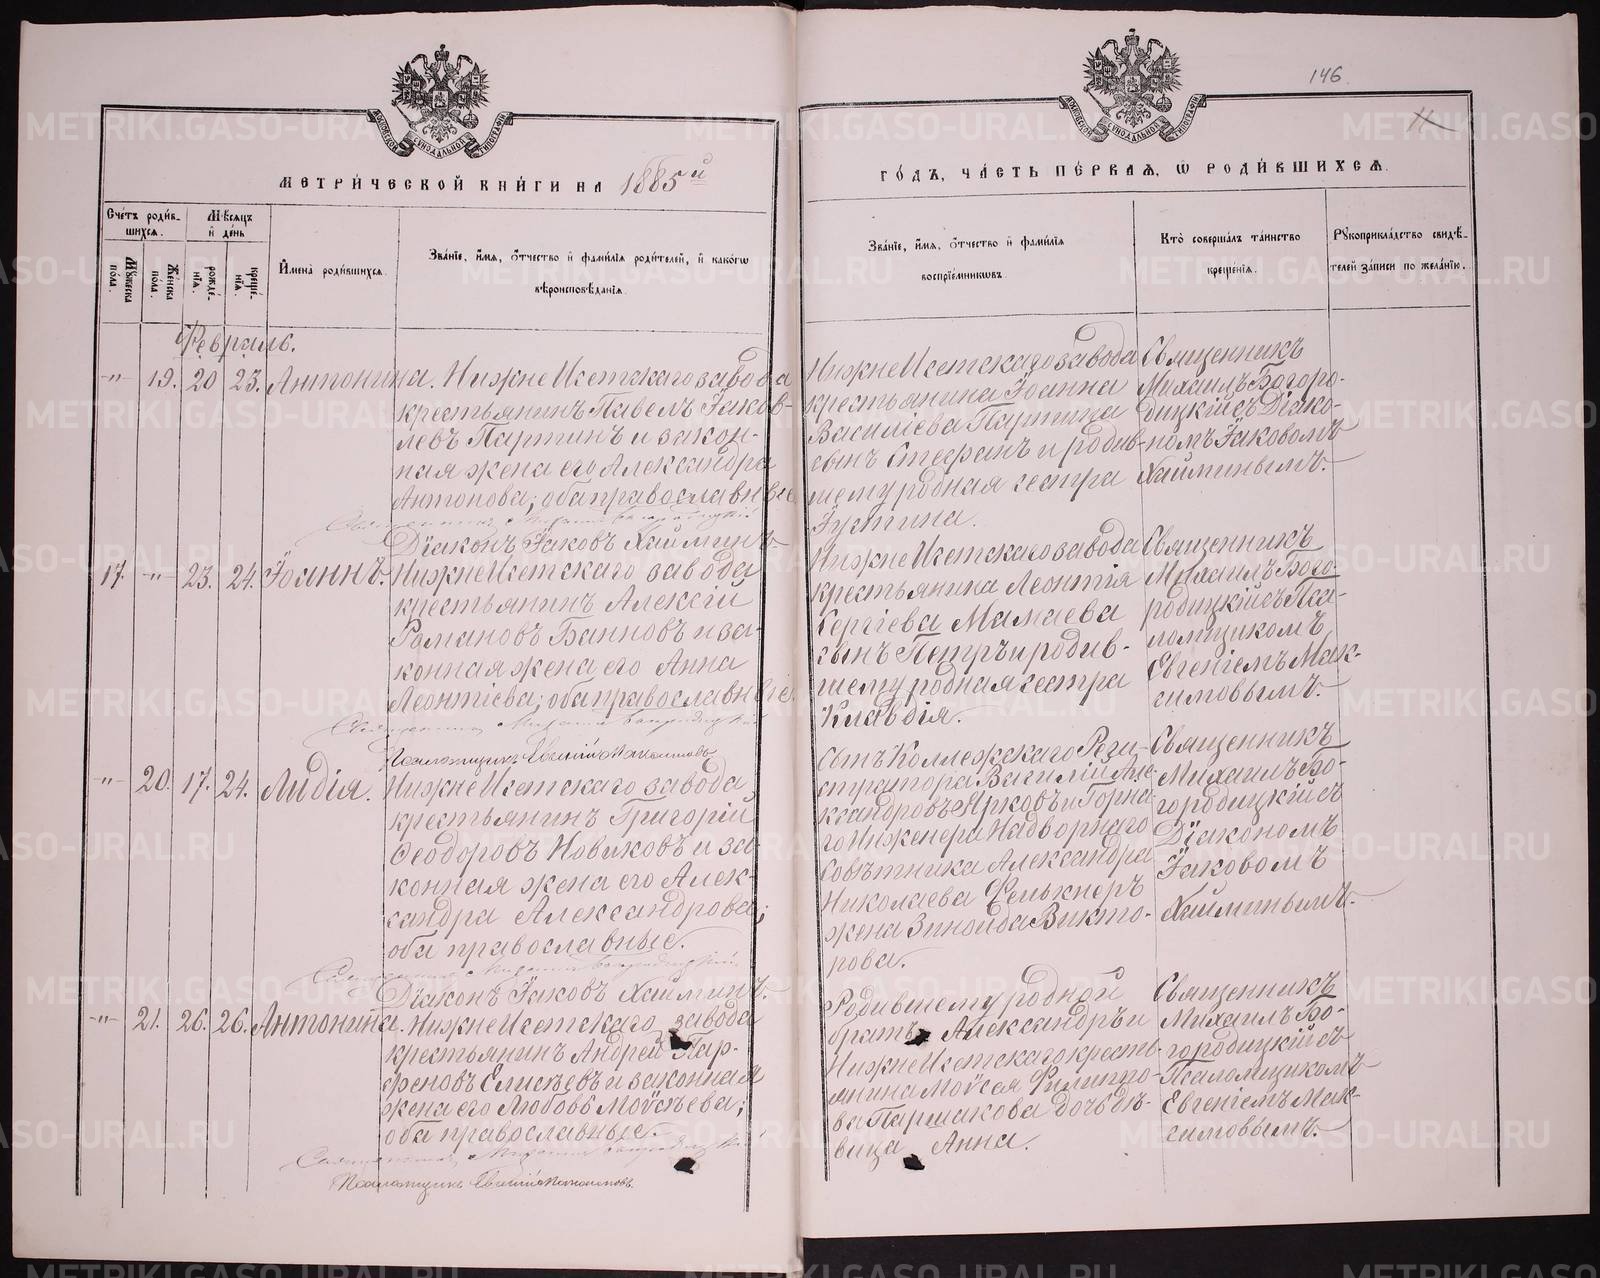 146.
11
МЕТРИ́ЧЕСКОЙ КНИ́ГИ НА 1885й
ГО́ДЪ, ЧА́СТЬ ПЕ́РВАѦ, Ѡ РОДИ́ВШИХСѦ.
Сче́тъ роди́в-
шихсѧ.
Мѣ́сѧцъ
и҆ де́нь
Му́жеска
по́ла.
Же́нска
по́ла.
рожде́-
нїѧ.
креще́-
нїѧ.
И҆мена̀ роди́вшихсѧ.
Зва́нїе, и҆́мѧ, ѻ҆́тчество и҆ фами́лїѧ роди́телей, и҆ како́гѡ
вѣроисповѣ́данїѧ.
Зва́нїе, и҆́мѧ, ѻ҆́тчество и҆ фами́лїѧ
воспрїе́мникѡвъ.
Кто̀ соверша́лъ та́инство
креще́нїѧ.
Рꙋкоприкла́дство свидѣ́-
телей за́писи по жела́нїю.
Февраль.
-"- 19. 20 23. Антонина. НижнеИсетскаго завода
крестьянинъ Павелъ Іаков-
левъ Партинъ и закон-
ная жена его Александра
Антонова; оба православные
Священникъ Михаилъ Богородицкій
Діаконъ Іаковъ Хайминъ.
НижнеИсетскаго завода
крестьянина Іоанна
Василіева Партина
сынъ Стефанъ и родив-
шему родная сестра
Іустина.
Священникъ
Михаилъ Богоро-
дицкій съ Діако-
номъ Іаковомъ
Хайминымъ.
17. -"- 23. 24. Іоаннъ. НижнеИсетскаго завода
крестьянинъ Алексій
Романовъ Банновъ и за-
конная жена его Анна
Леонтіева; оба православные.
Священникъ Михаилъ Богородицкій
Псаломщикъ Евгеній Максимовъ
НижнеИсетскаго завода
крестьянина Леонтія
Сергіева Мамаева
сынъ Петръ и родив-
шему родная сестра
Клавдія.
Священникъ
Михаилъ Бого-
родицкій съ Пса-
ломщикомъ
Евгеніемъ Мак-
симовымъ.
-"- 20. 17. 24. Лидія. НижнеИсетскаго завода
крестьянинъ Григорій
Ѳеодоровъ Новиковъ и за-
конная жена его Алек-
сандра Александрова;
оба православные.
Священникъ Михаилъ Богородицкій
Діаконъ Іаковъ Хайминъ.
Сынъ Коллежскаго Реги-
стратора Василій Але-
ксандровъ Ярковъ и Горна-
го Инженера Надворнаго
Совѣтника Александра
Николаева Фелькнеръ
жена Зиноида Викто-
рова.
Священникъ
Михаилъ Бо-
городицкій съ
Діакономъ
Іаковомъ
Хайминымъ.
-"- 21. 26. 26. Антонина. НижнеИсетскаго завода
крестьянинъ Андрей Пар-
феновъ Елисѣевъ и законная
жена его Любовь Моѵсѣева;
оба православные.
Священникъ Михаилъ Богородицкій
Псаломщикъ Евгеній Максимовъ.
Родившему родной
братъ Александръ и
НижнеИсетскаго кресть-
янина Моѵсея Филиппо-
ва Паршакова дочь дѣ-
вица Анна.
Священникъ
Михаилъ Бо-
городицкій съ
Псаломщикомъ
Евгеніемъ Мак-
симовымъ.